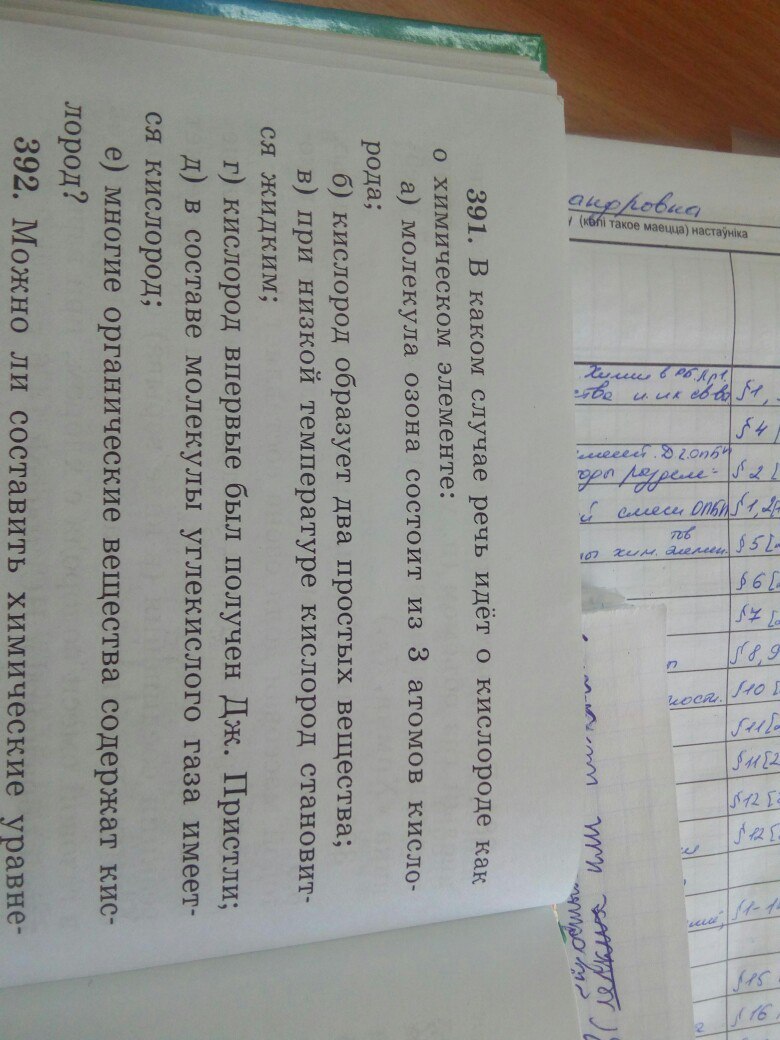 391. В каком случае речь идёт о кислороде как
о химическом элементе:
а) молекула озона состоит из 3 атомов кисло-
рода;
б) кислород образует два простых вещества;
в) при низкой температуре кислород становит-
ся жидким;
г) кислород впервые был получен Дж. Пристли;
д) в составе молекулы углекислого газа имеет-
ся кислород;
е) многие органические вещества содержат кис-
лород?
392. Можно ли составить химические уравне-
андровна
(калі такое маецца) настаўніка
Химии в
ства и их св-ва §1,
§4
§2
смеси §1,2
хим. элемен. §5
§6
§7
§8,9
§10
§11
§11
§12
§12
§1-1
§15
§16